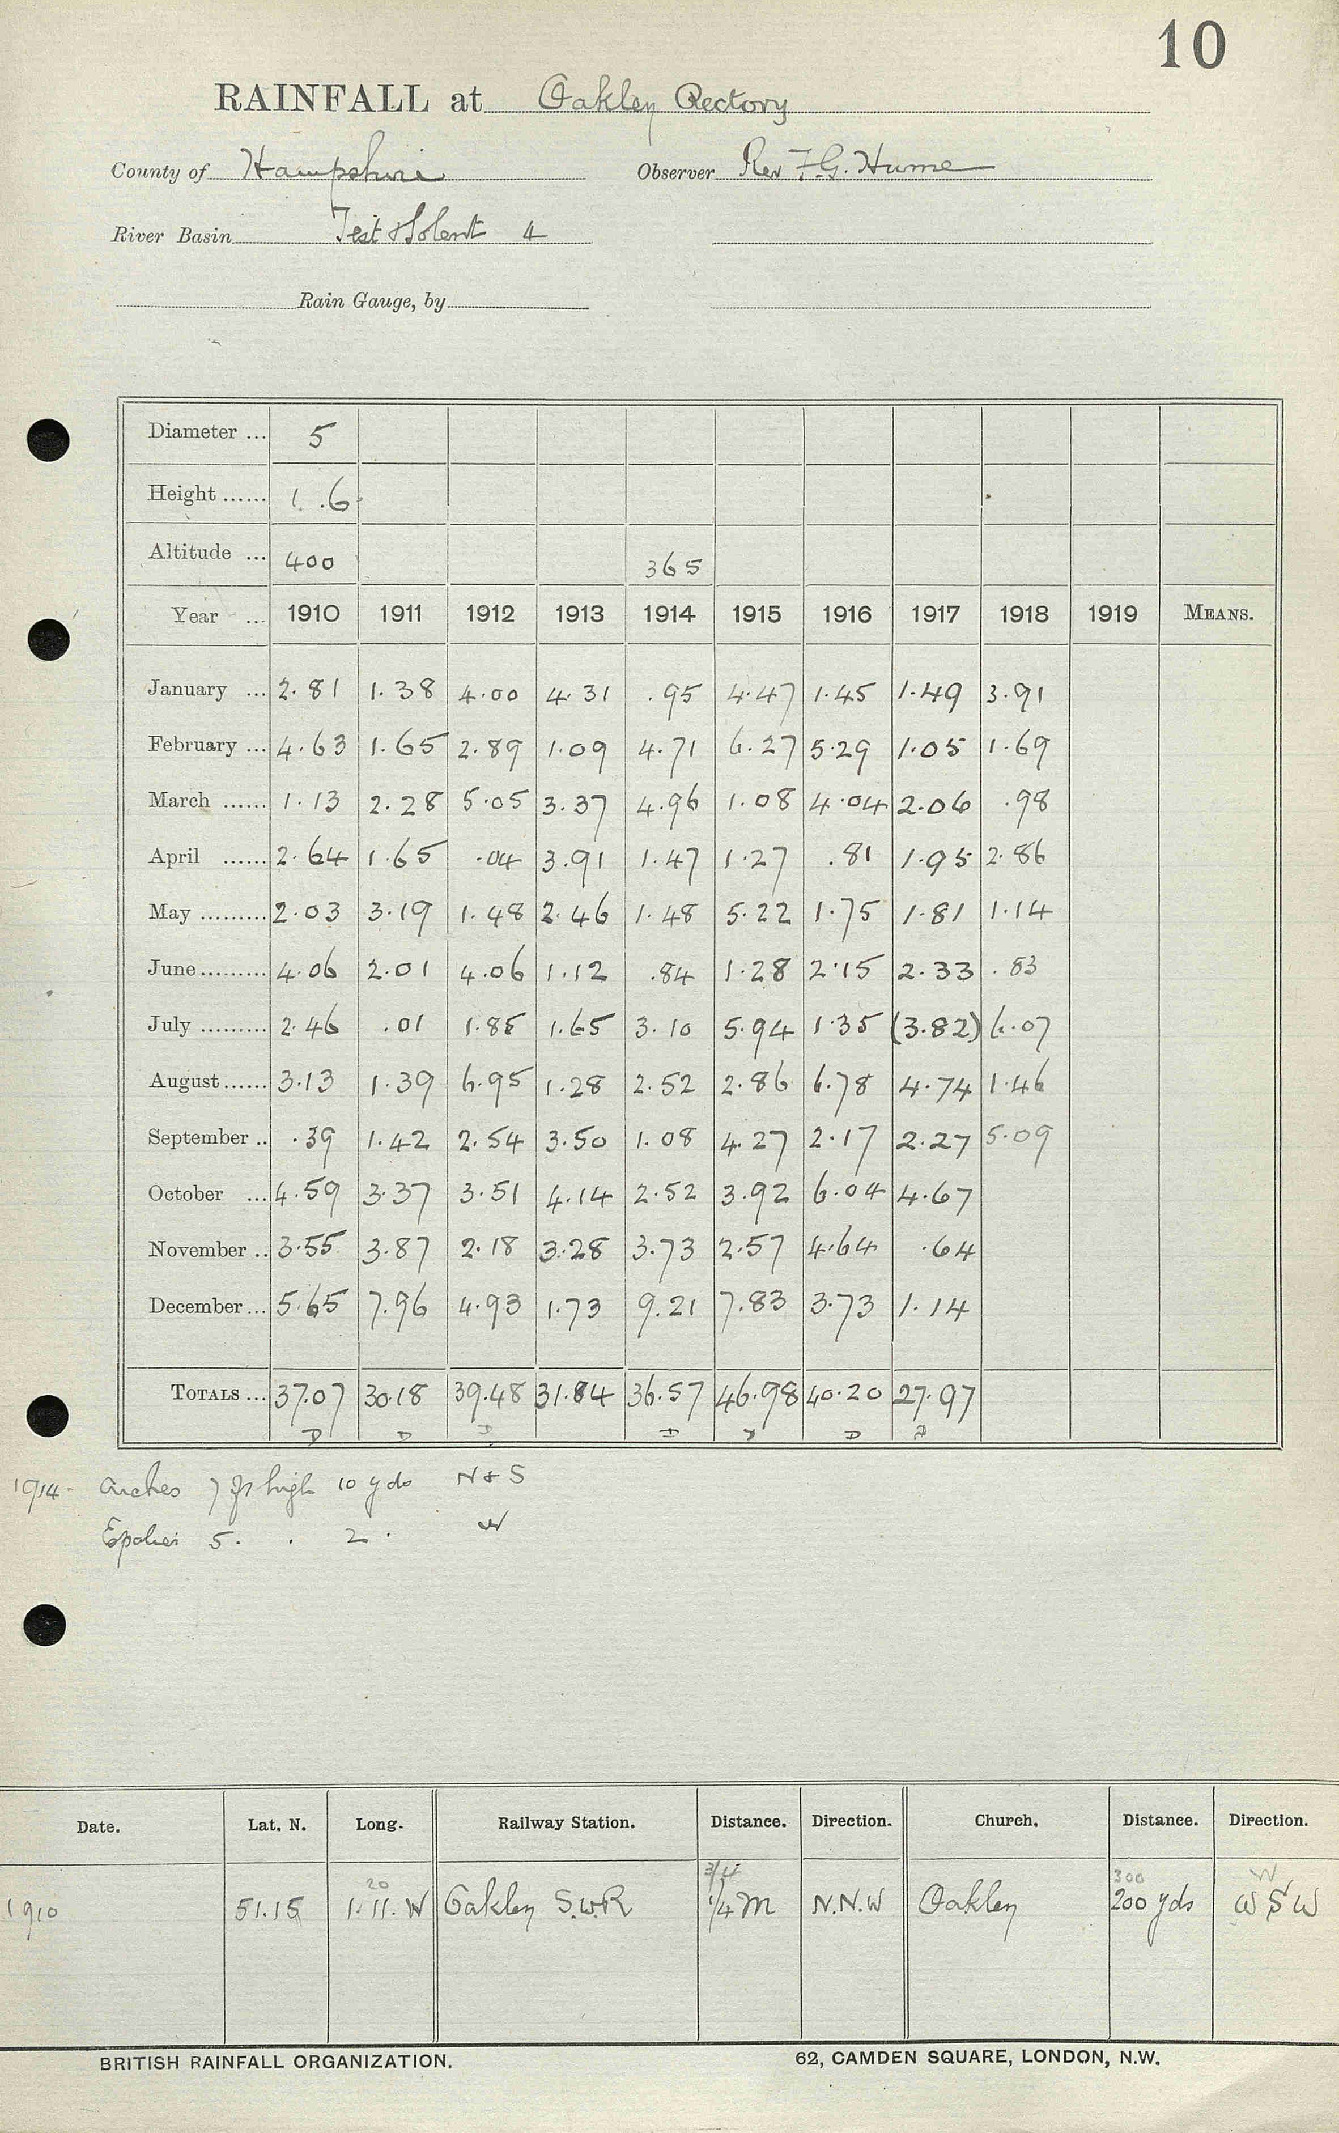 10
RAINFALL at Oakley Rectory
County of Hampshire Observer Rev F.G. Hume
River Basin Test & Solent 4
Rain Gauge, by
Diameter ... 5
Height ...... 1 .6
Altitude ... 400 365
Year ... 1910 1911 1912 1913 1914 1915 1916 1917 1918 1919 MEANS.
January ... 2.81 1.38 4.00 4.31 .95 4.47 1.45 1.49 3.91
February ... 4.63 1.65 2.89 1.09 4.71 6.27 5.29 1.05 1.69
March ...... 1.13 2.28 5.05 3.37 4.96 1.08 4.04 2.06 .98
April ...... 2.64 1.65 .04 3.91 1.47 1.27 .81 1.95 2.86
May ......... 2.03 3.19 1.48 2.46 1.48 5.22 1.75 1.81 1.14
June ......... 4.06 2.01 4.06 1.12 .84 1.28 2.15 2.33 .83
July ......... 2.46 .01 1.85 1.65 3.10 5.94 1.35 (3.82) 6.07
August ...... 3.13 1.39 6.95 1.28 2.52 2.86 6.78 4.74 1.46
September .. .39 1.42 2.54 3.50 1.08 4.27 2.17 2.27 5.09
October ... 4.59 3.37 3.51 4.14 2.52 3.92 6.04 4.67
November .. 3.55 3.87 2.18 3.28 3.73 2.57 4.64 .64
December ... 5.65 7.96 4.93 1.73 9.21 7.83 3.73 1.14
TOTALS ... 37.07 30.18 39.48 31.84 36.57 46.98 40.20 27.97
1914 Arches 7 ft high 10 yds N & S
5 . . 2 . W
Date. Lat. N. Long. Railway Station. Distance. Direction. Church. Distance. Direction.
20 3/4 300 W
1910 51.15 1.11.W Oakley S.W.R 1/4 m N.N.W Oakley 200 yds W S W
BRITISH RAINFALL ORGANIZATION. 62, CAMDEN SQUARE, LONDON, N.W.